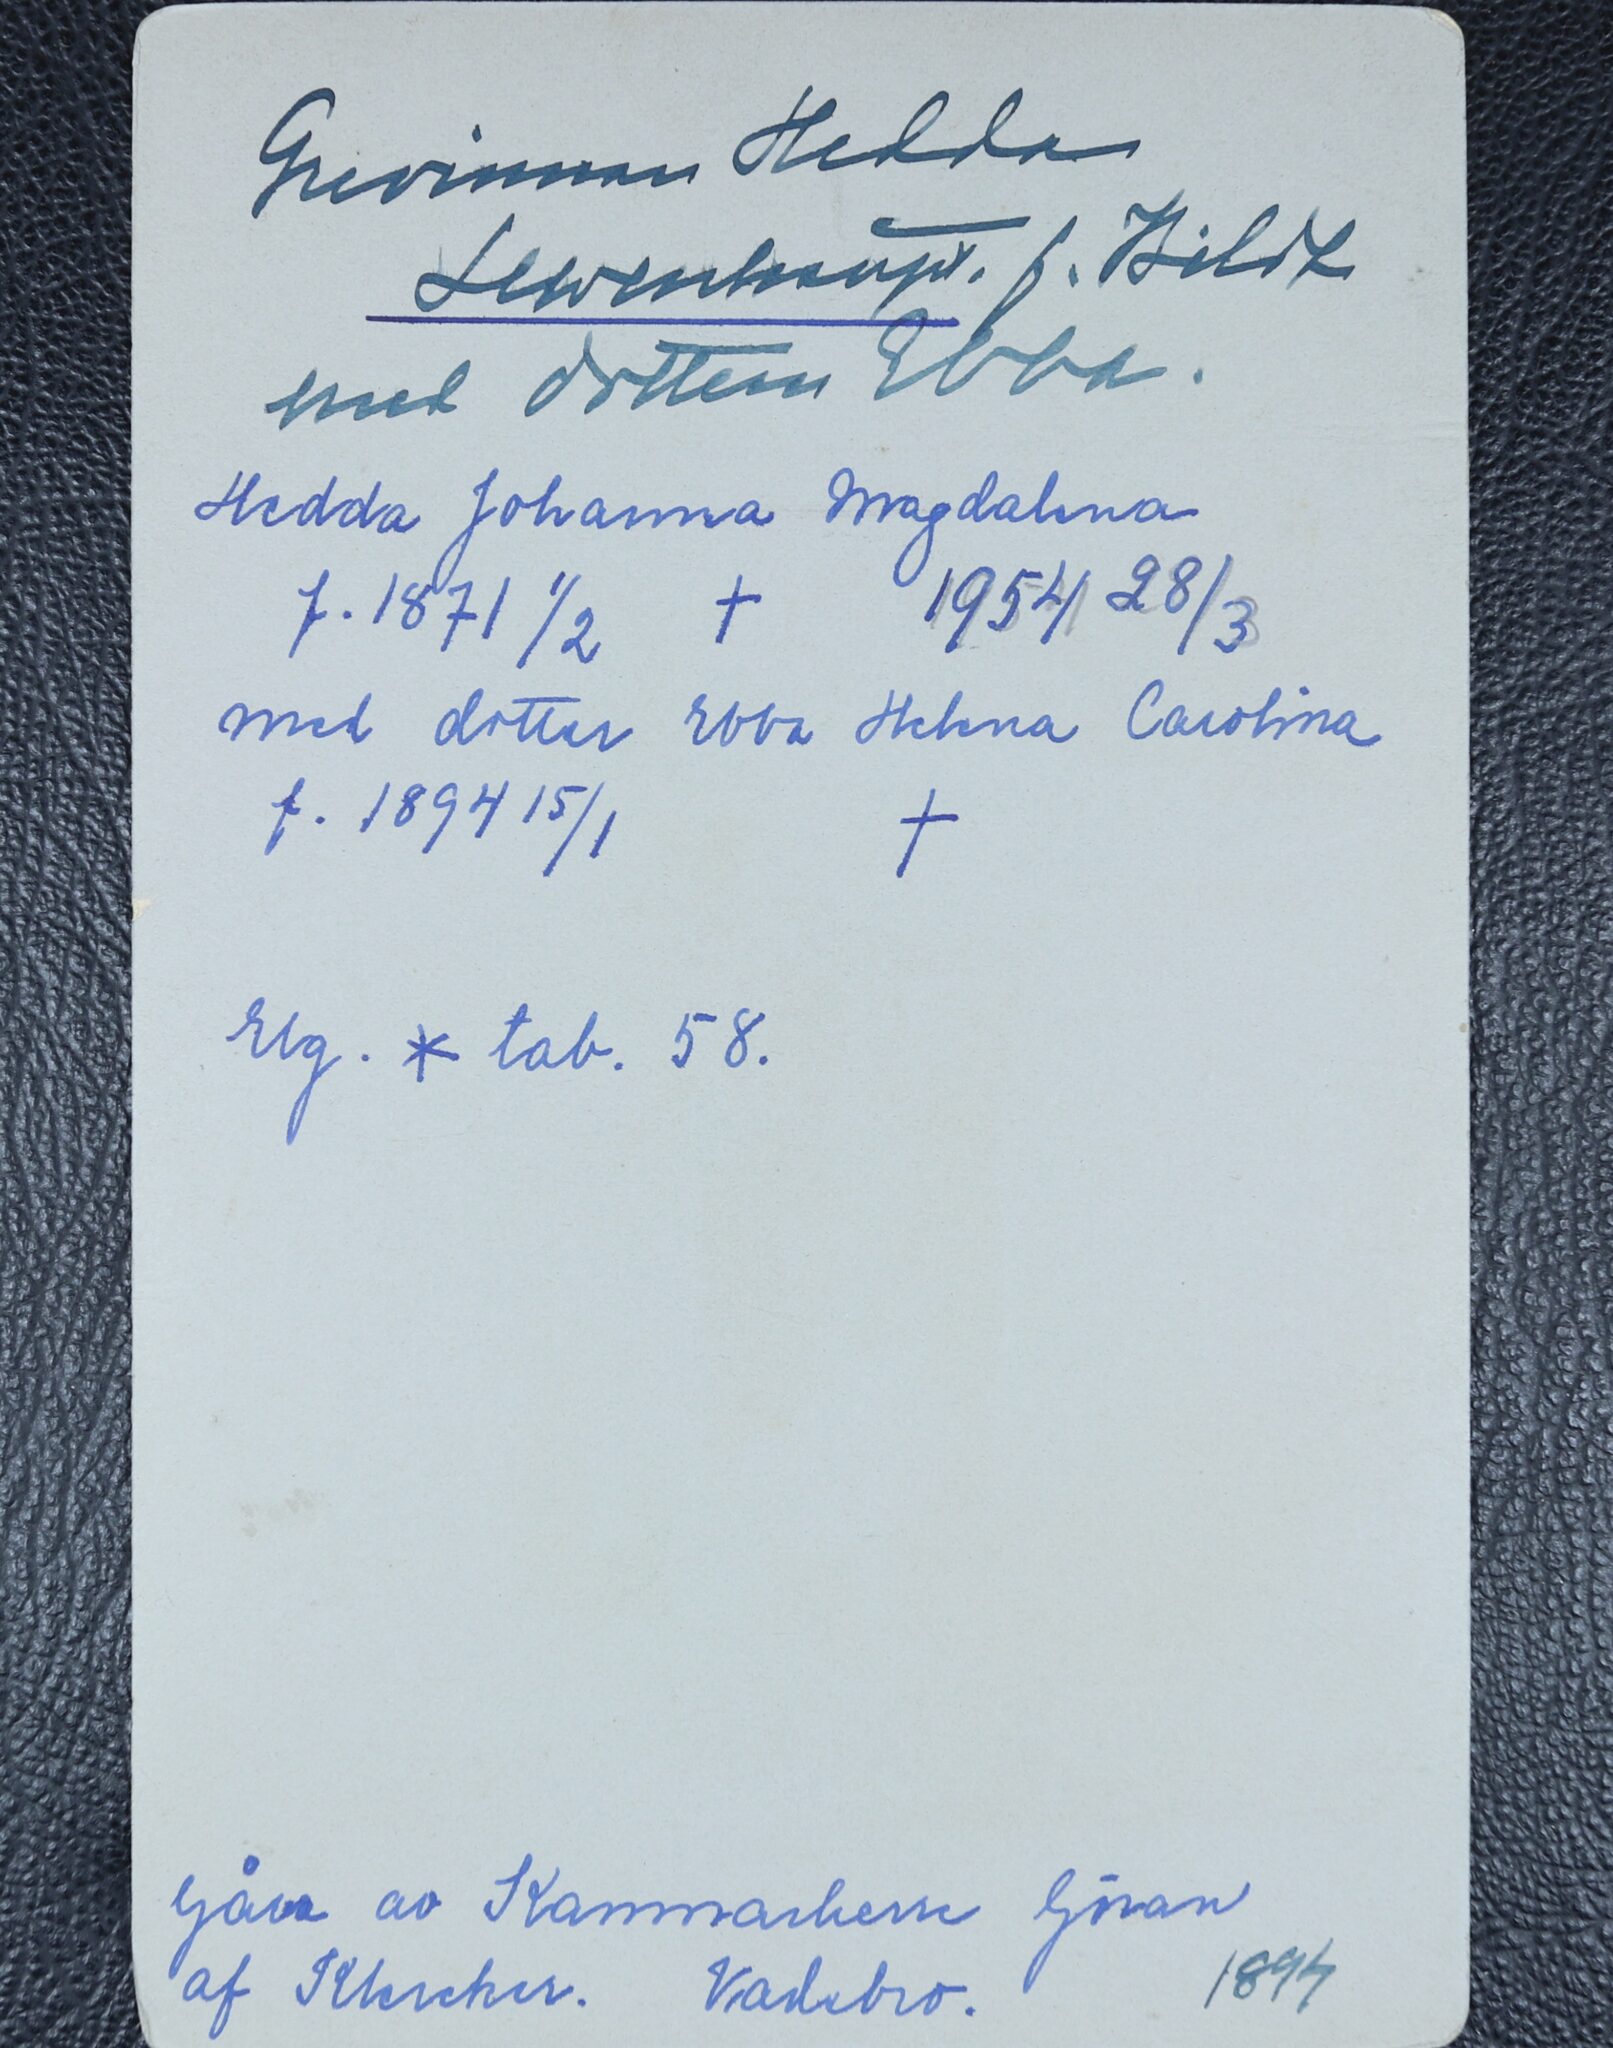 Grevinnan Hedda
Lewenhaupt. f. Bildt
med dottern Ebba.
Hedda Johanna Magdalena
f. 1871 1/2 † 1954 28/3
med dotter Ebba Helena Carolina
f. 1894 15/1 †
Elg. * tab. 58.
Gåva av Kammarherre Göran
af Klercker. Vadsbro. 1894